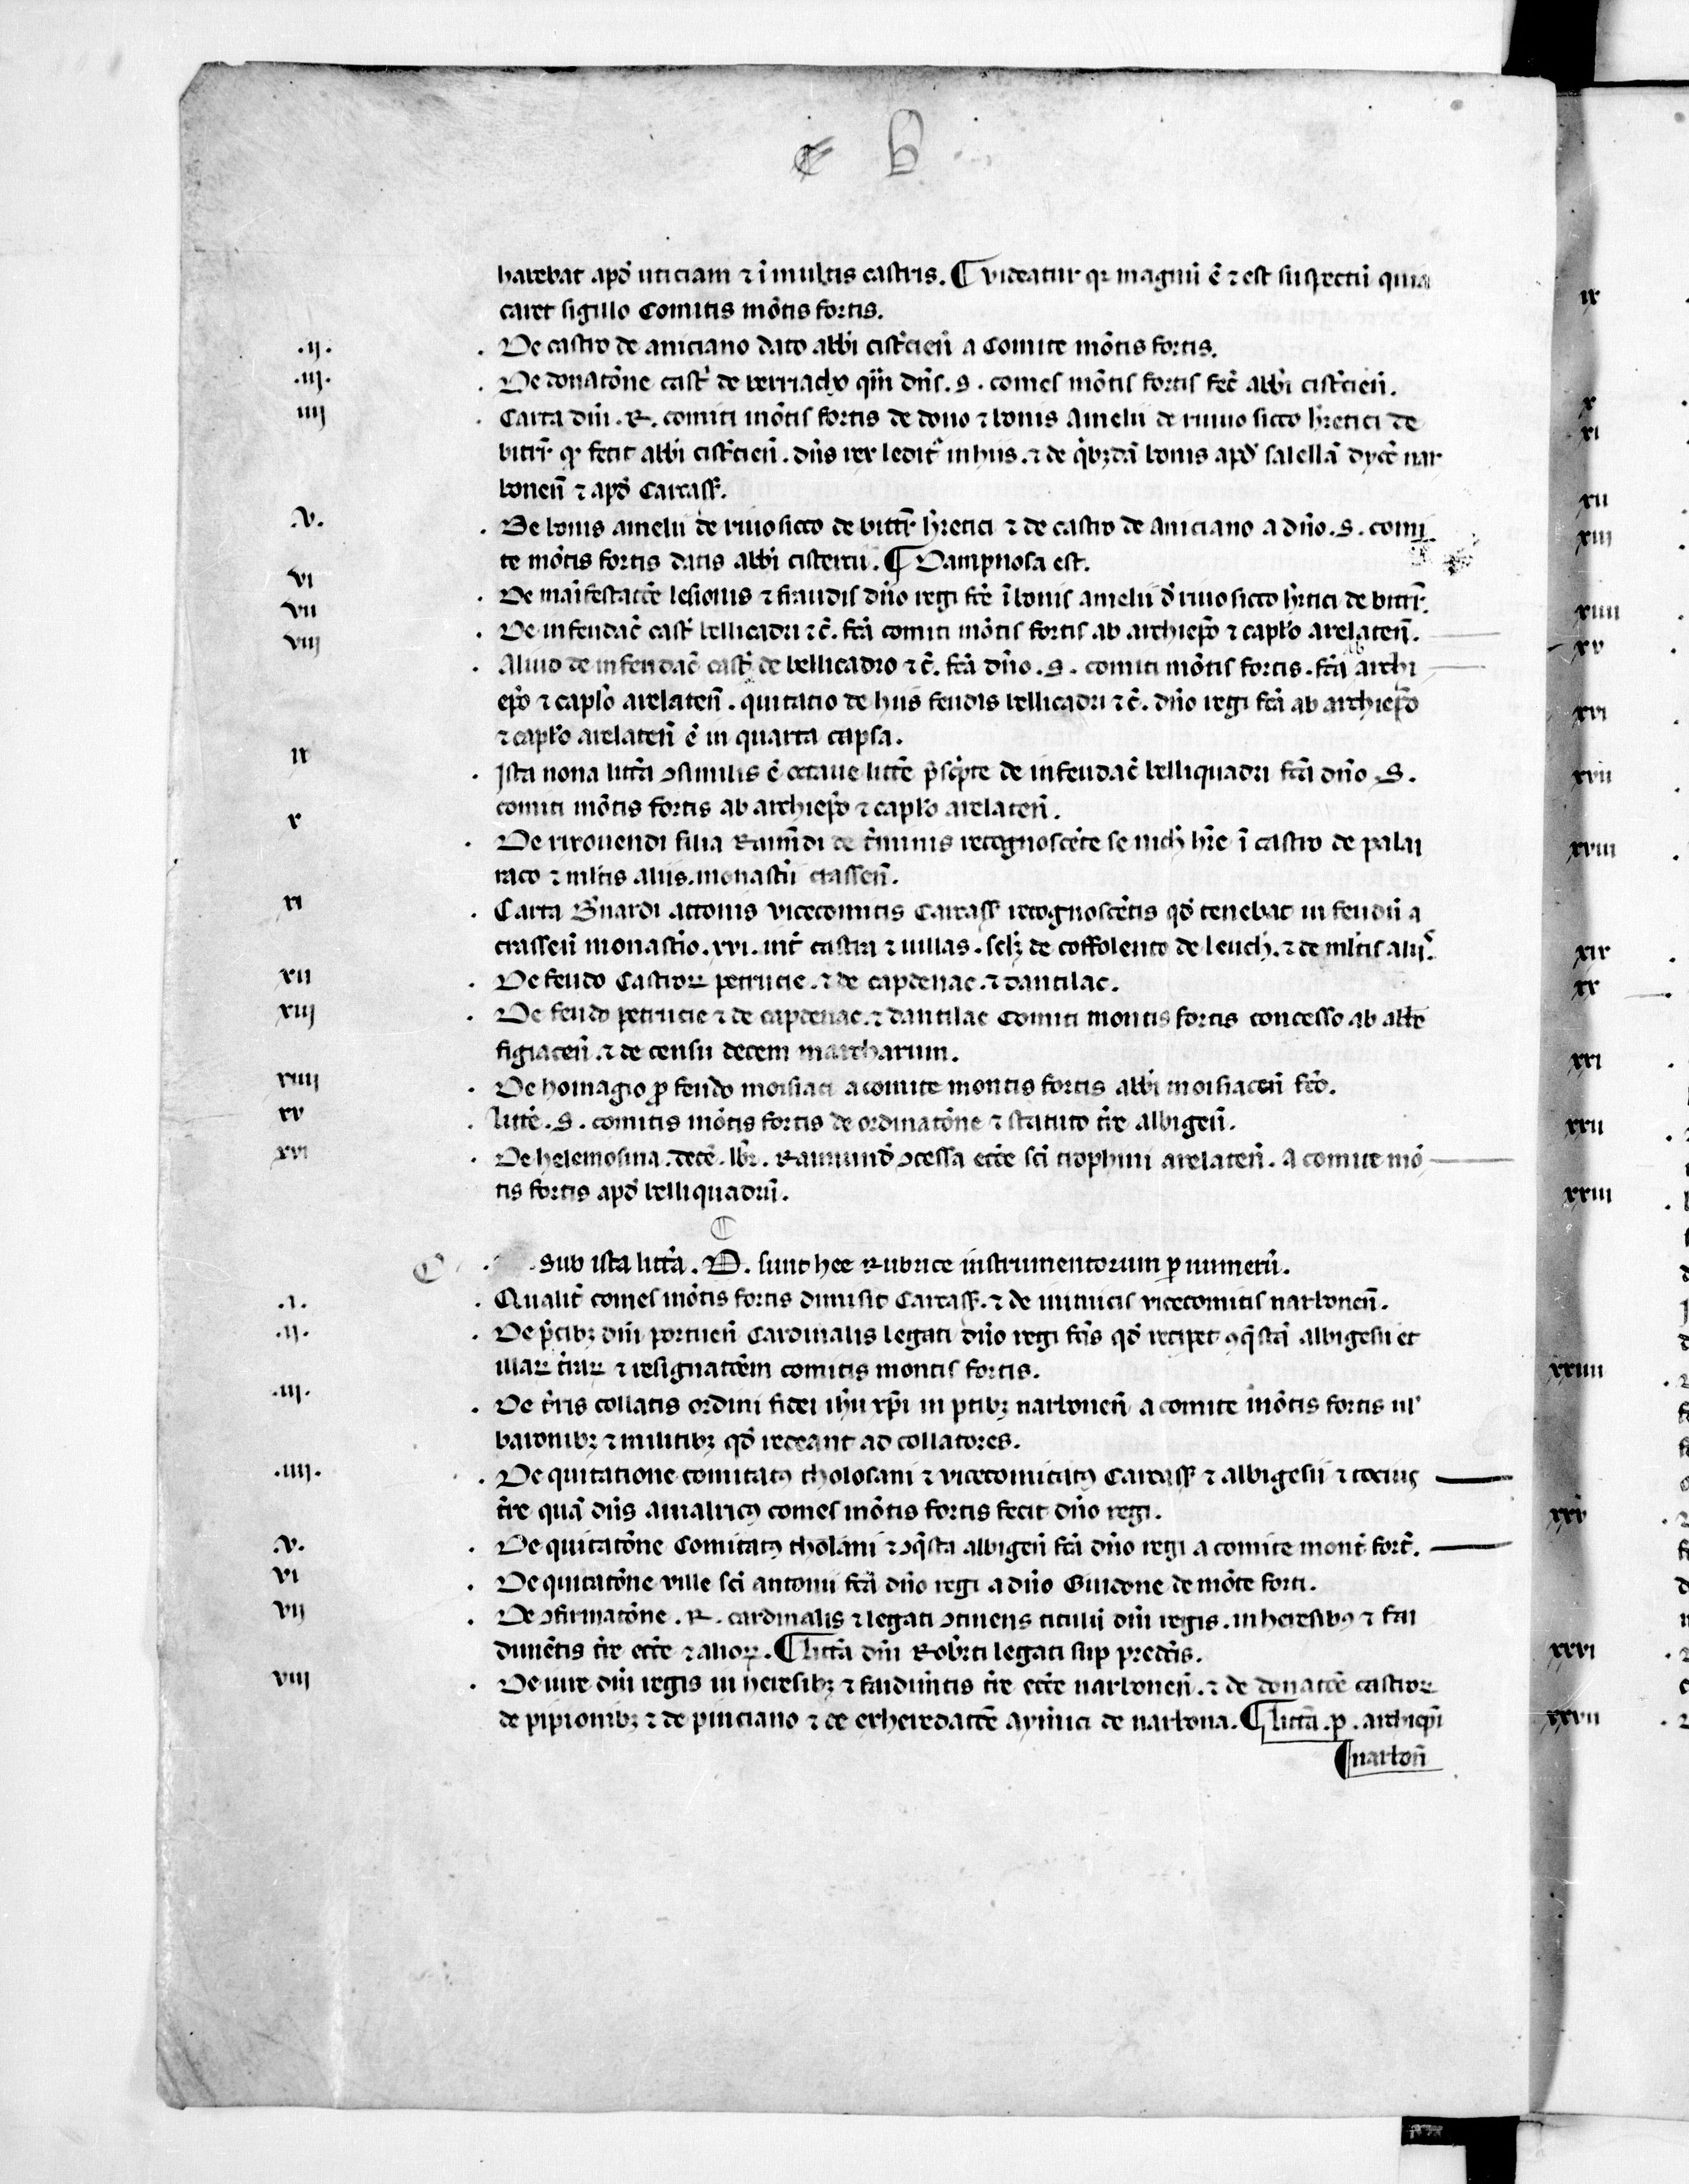 C B
habebat apd' uticiam ⁊ ī multis castris. ¶ videatur qr magnū ē ⁊ est suspectū quia
caret sigillo Comitis mōtis fortis.
.ij. De castro de aniciano dato abbi cist'cien̄ a Comite mōtis fortis.
.iij. De donatōne cast' de verriacho dn̄s . S . comes mōtis fortis fec̄ abbi cist'cien̄ .
iiij Carta dn̄i . R . comiti mōtis fortis de dono ⁊ bonis Amelii de riuuo sicco h'retici de
bitirr' fecit abbi cist'cien̄ . dn̄s rex ledit' in hiis . ⁊ de q'bȝdā bonis apd' salellā dyoc' nar
bonen̄ ⁊ apd' Carcass'.
.v. De bonis amelii de riuo sicco de bitirr' h'retici ⁊ de castro de Aniciano a dn̄o . S . comi
te mōtis fortis datis abbi cistercii . ¶ Dampnosa est .
vi De māifestatōe lesionis ⁊ fraudis dn̄o regi fc̄e ī bonis amelii d' riuo sicco h'rtici de bitirr'.
vii De infeudac̄ cast' bellicadri ⁊c̄ . fc̄ā comiti mōtis fortis ab archiep̄o ⁊ capl̄o arelaten̄ .
viij Alino de infeudac̄ cast' de bellicadro ⁊c̄ . fc̄ā dn̄o . S . comiti mōtis fortis . fc̄ā ab archi
ep̄o ⁊ capl̄o arelaten̄ . quitatio de hiis feudis bellicadri ⁊c̄ . dn̄o regi fc̄ā ab archiep̄o
⁊ capl̄o arelaten̄ ē in quarta capsa .
ix Ista nona litt'a ꝯsimilis ē octaue litt'e p̄sc'pte de infeudac̄ belliquadri fc̄ā dn̄o . S .
comiti mōtis fortis ab archiep̄o ⁊ capl̄o arelaten̄ .
x De rixouendi filia Raimūdi de t'minis recognoscēte se nich' h're ī castro de palai
raco ⁊ ml'tis aliis . monast'ii crassen̄ .
xi Carta B'nardi attonis vicecomitis Carcass' recognoscētis qd' tenebat in feudū a
crassen̄ monast'io . xvi . int' castra ⁊ uillas . sclȝ de coffolento de leuch . ⁊ de ml'tis aliis .
xii De feudo Castroꝝ petrucie . ⁊ de capdenac . ⁊ dantilac .
xiij De feudo petrucie ⁊ de capdenac . ⁊ dantilac Comiti montis fortis concesso ab abb'e
figiacen̄ . ⁊ de censu decem marcharum .
xiiij De homagio ꝓ feudo moisiaci a comite montis fortis abbi moisiacen̄ fc̄o .
xv litt'e . S . comitis mōtis fortis de ordinatōne ⁊ statuto t're albigen̄ .
xvi De helemosina . decē . lbr' . Raimund' ꝯcessa ecc'e sci trophimi arelaten̄ . A comite mō
tis fortis apd' belliquadrū .
C . Sub ista litt'a . D . sunt hee Rubrice instrumentorum p numerū .
.i. Qualit' comes mōtis fortis dimisit Carcass' . ⁊ de inimicis vicecomitis narbonen̄ .
.ij. De p'cibȝ dn̄i portuen̄ Cardinalis legati dn̄o regi fc̄is qd' recipet ꝯq'stā albigesii et
illaꝝ t'raꝝ ⁊ resignatōem comitis montis fortis .
.iij. De t'ris collatis ordini fidei ih̄u xp̄i in ptibȝ narbonen̄ a comite mōtis fortis ul'
baronibȝ ⁊ militibȝ qd' redeant ad collatores .
.iiij. De quitatione comitatꝰ tholosani ⁊ vicecomitatꝰ Carcass' ⁊ albigesii ⁊ tociꝰ
t're quā dn̄s Amalricꝰ comes mōtis fortis fecit dn̄o regi .
.v. De quitatōne Comitatꝰ tholani ⁊ ꝯq'sta albigen̄ fc̄ā dn̄o regi a comite mont' fort' .
vi De quitatōne ville sci antonii fc̄ā dn̄o regi a dn̄o Guidone de mōte forti .
vij De ꝯfirmatōne . R . cardinalis ⁊ legati ꝯtinens titulū dn̄i regis . in heresibꝰ ⁊ fai
dimētis t're ecc'e ⁊ alioꝝ . ¶ litt'a dn̄i Rob'rti legati sup predc̄is .
viij De iure dn̄i regis in heresibȝ ⁊ faidim'tis t're ecc'e narbonen̄ . ⁊ de donatōe castroꝝ
de pipionibȝ ⁊ de pinciano ⁊ de exheredatōe aym'ici de narbona . ¶ litt'a . p . archiep̄i
¶ narbon̄
ix
x
xi
xii
xiij
xiiij
xv
xvi
xvii
xviii
xix
xx
xxi
xxii
xxiii
xxiiii
xxv
xxvi
xxvii